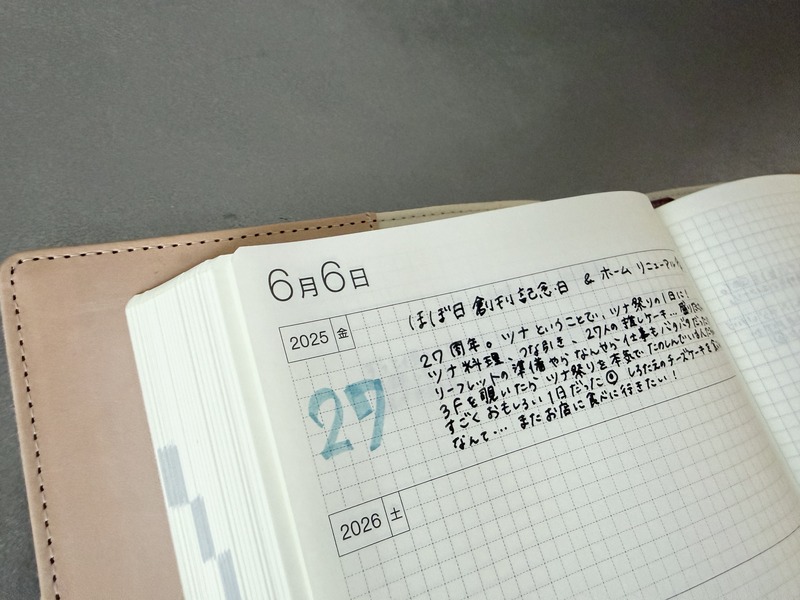 6月6日
ほぼ日創刊記念日 & ホームリニューアル
2025 金
27周年。ツナということで、ツナ祭りの1日に!
ツナ料理、つな引き、27人の推しケーキ…
リーフレットの準備やらなんやら仕事もバタバタだった
3Fを覗いたらツナ祭りを本気でたのしんでいる
すごくおもしろい1日だった しろたえのチーズケーキ
なんて… またお店に食べに行きたい!
27
2026 土